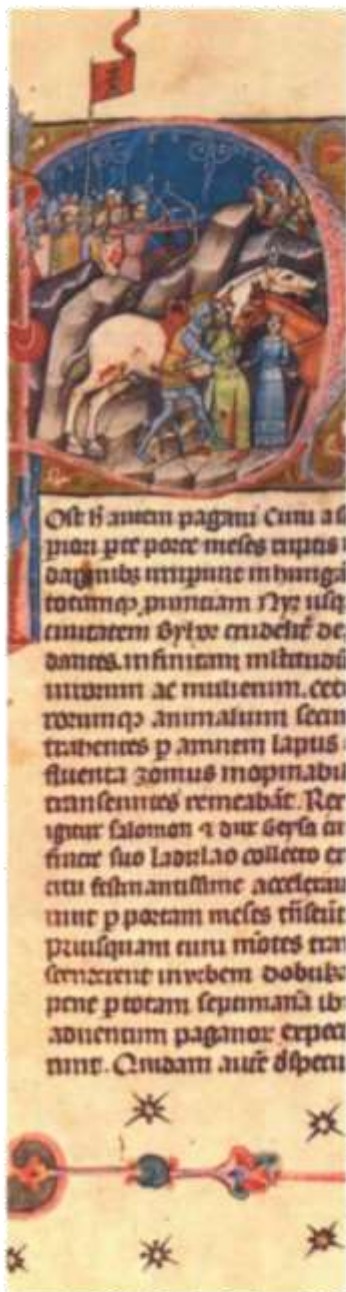 Ost h autem pagani Cuni a s
piori pte porte meses ruptis
daginibz irrupunt in hunga
totamqȝ puinciam Nyr usq
ciuitatem Byhor crudelit de
dantes. infinitam mltitudi
uirorum ac mulierum. cet
rorumqȝ animalium secum
trahentes p amnem lapus
fluenta zomus inopinabil
transeuntes remeabat. Rex
igitur salomon ⁊ dux Geysa cū
fratre suo Ladizlao collecto ex
citu festinantissime accelerau
runt p portam meses tnseūt
priusquam cuni motes tran
scenderent in urbem dobuka
pene p totam septimanā ib
aduentum paganor expec
runt. Quidam autē dspecu